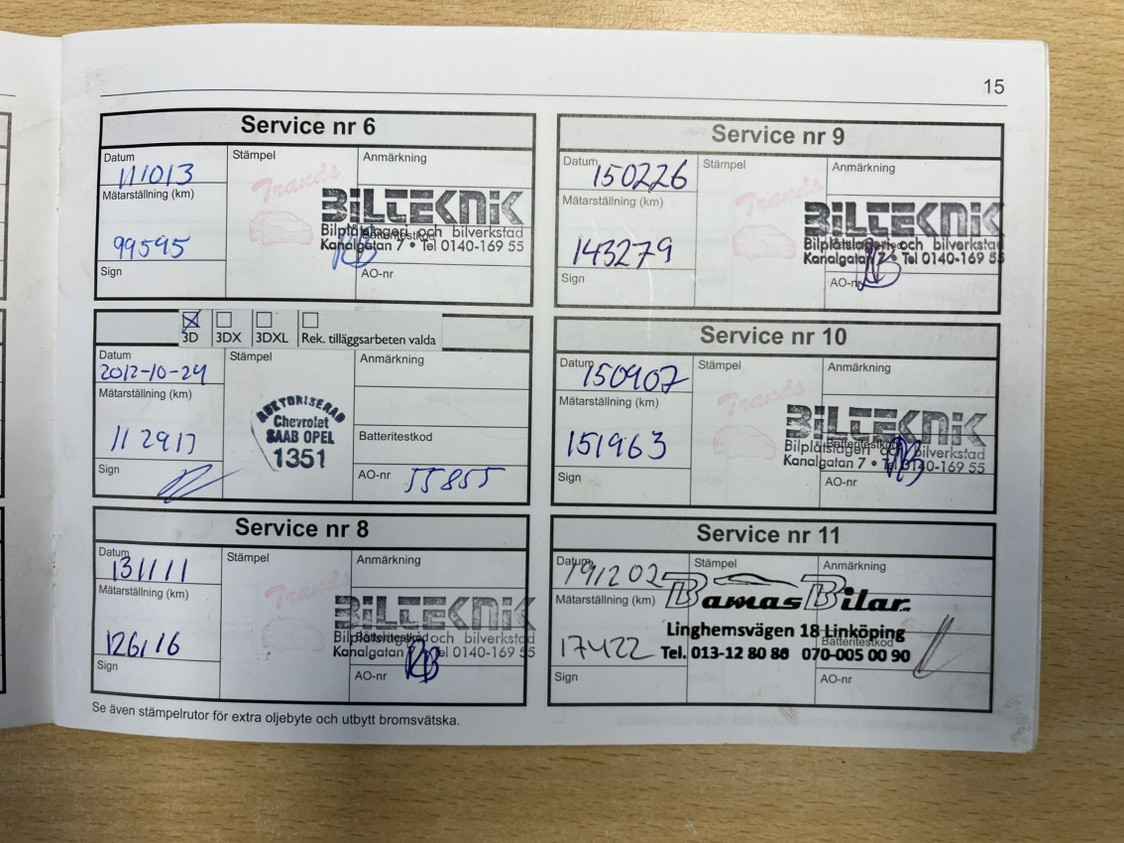 15
Service nr 6
Datum
111013
Stämpel
Anmärkning
Mätarställning (km)
99595
Trana's
BILTEKNIK
Bilplåtslageri och bilverkstad
Kanalgatan 7 • Tel 0140-169 55
Batteritestkod
Sign
AO-nr
3D
3DX
3DXL
Rek. tilläggsarbeten valda
Datum
2012-10-29
Stämpel
Anmärkning
Mätarställning (km)
AUKTORISERAD
Chevrolet
SAAB OPEL
1351
Batteritestkod
Sign
AO-nr 55855
Service nr 8
Datum
131111
Stämpel
Anmärkning
Mätarställning (km)
126116
Trana's
BILTEKNIK
Bilplåtslageri och bilverkstad
Kanalgatan 7 • Tel 0140-169 55
Batteritestkod
Sign
AO-nr
Se även stämpelrutor för extra oljebyte och utbytt bromsvätska.
Service nr 9
Datum
150226
Stämpel
Anmärkning
Mätarställning (km)
143279
Trana's
BILTEKNIK
Bilplåtslageri och bilverkstad
Kanalgatan 7 • Tel 0140-169 55
Sign
AO-nr
Service nr 10
Datum
150907
Stämpel
Anmärkning
Mätarställning (km)
151963
Trana's
BILTEKNIK
Bilplåtslageri och bilverkstad
Kanalgatan 7 • Tel 0140-169 55
Batteritestkod
Sign
AO-nr
Service nr 11
Datum
191202
Stämpel
Anmärkning
Mätarställning (km)
17422
Bamas Bilar
Linghemsvägen 18 Linköping
Tel. 013-12 80 86 070-005 00 90
Batteritestkod
Sign
AO-nr